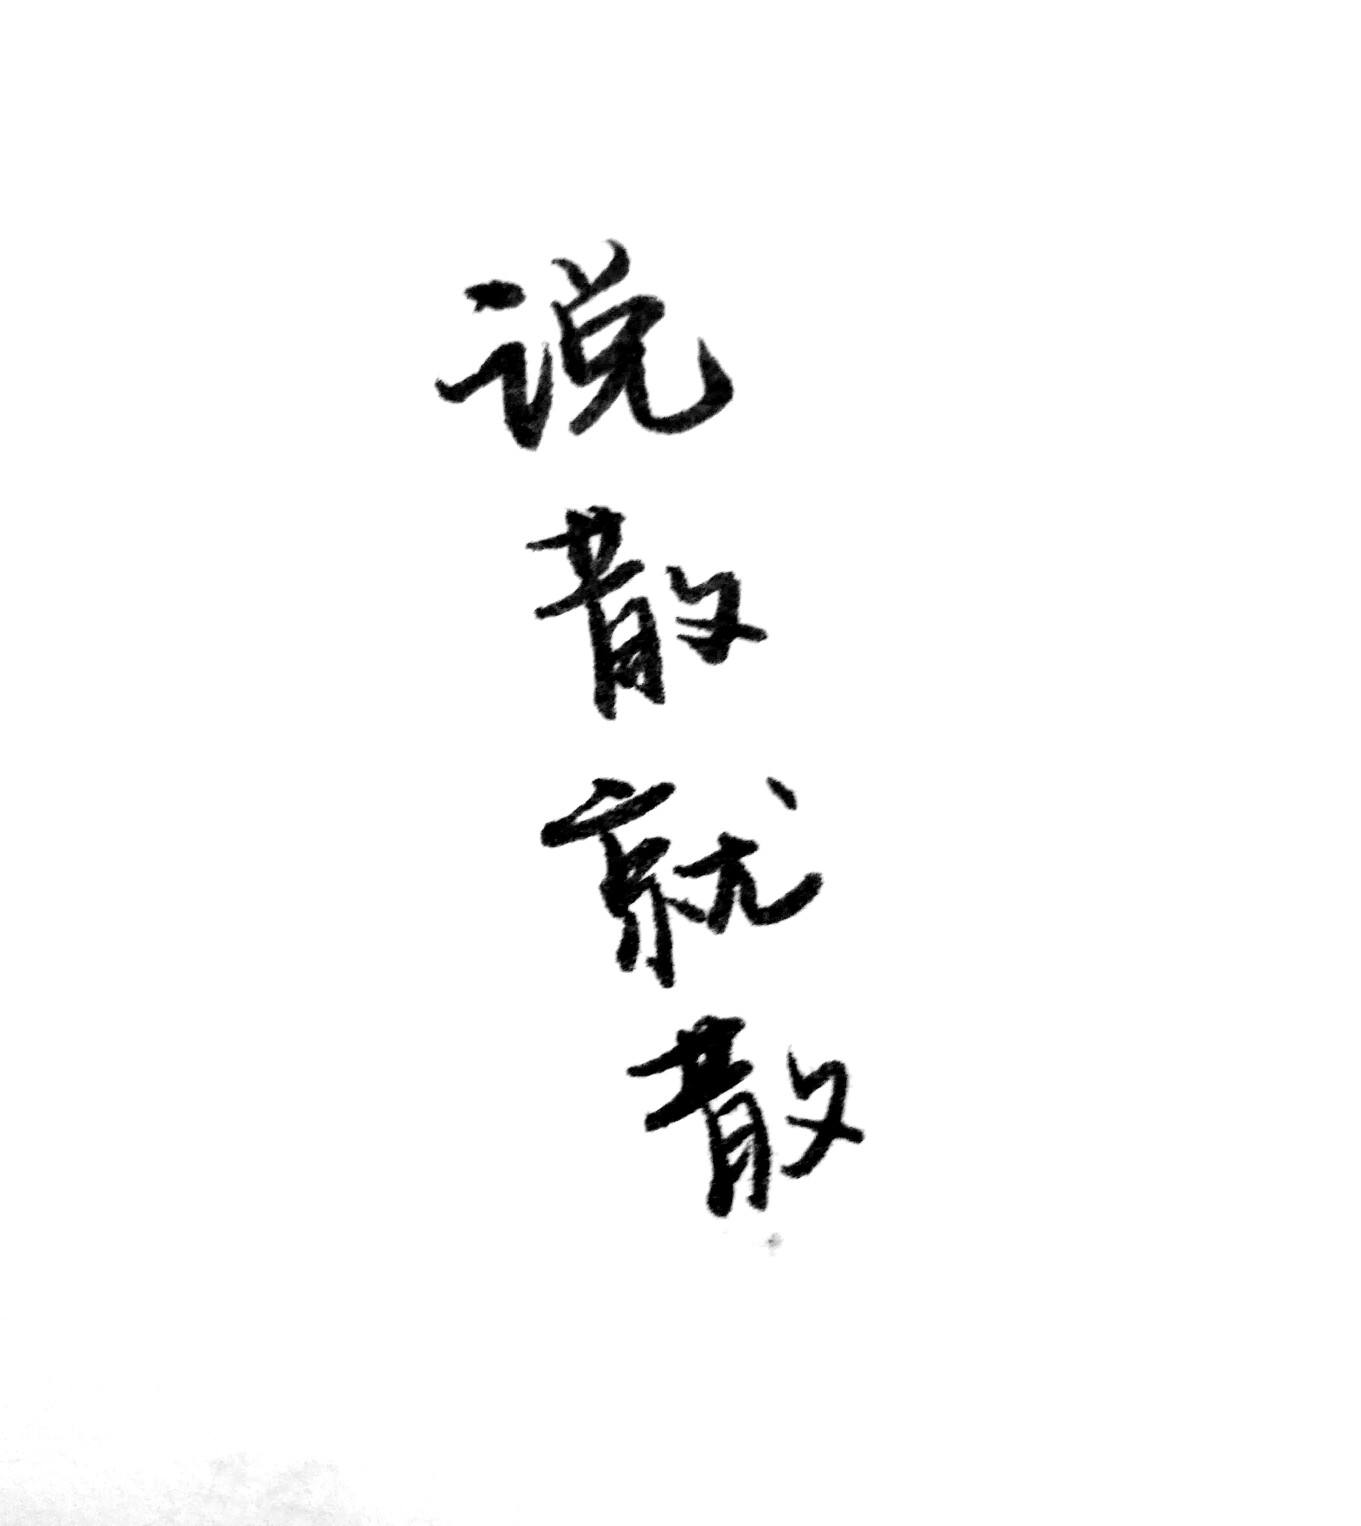 说散就散